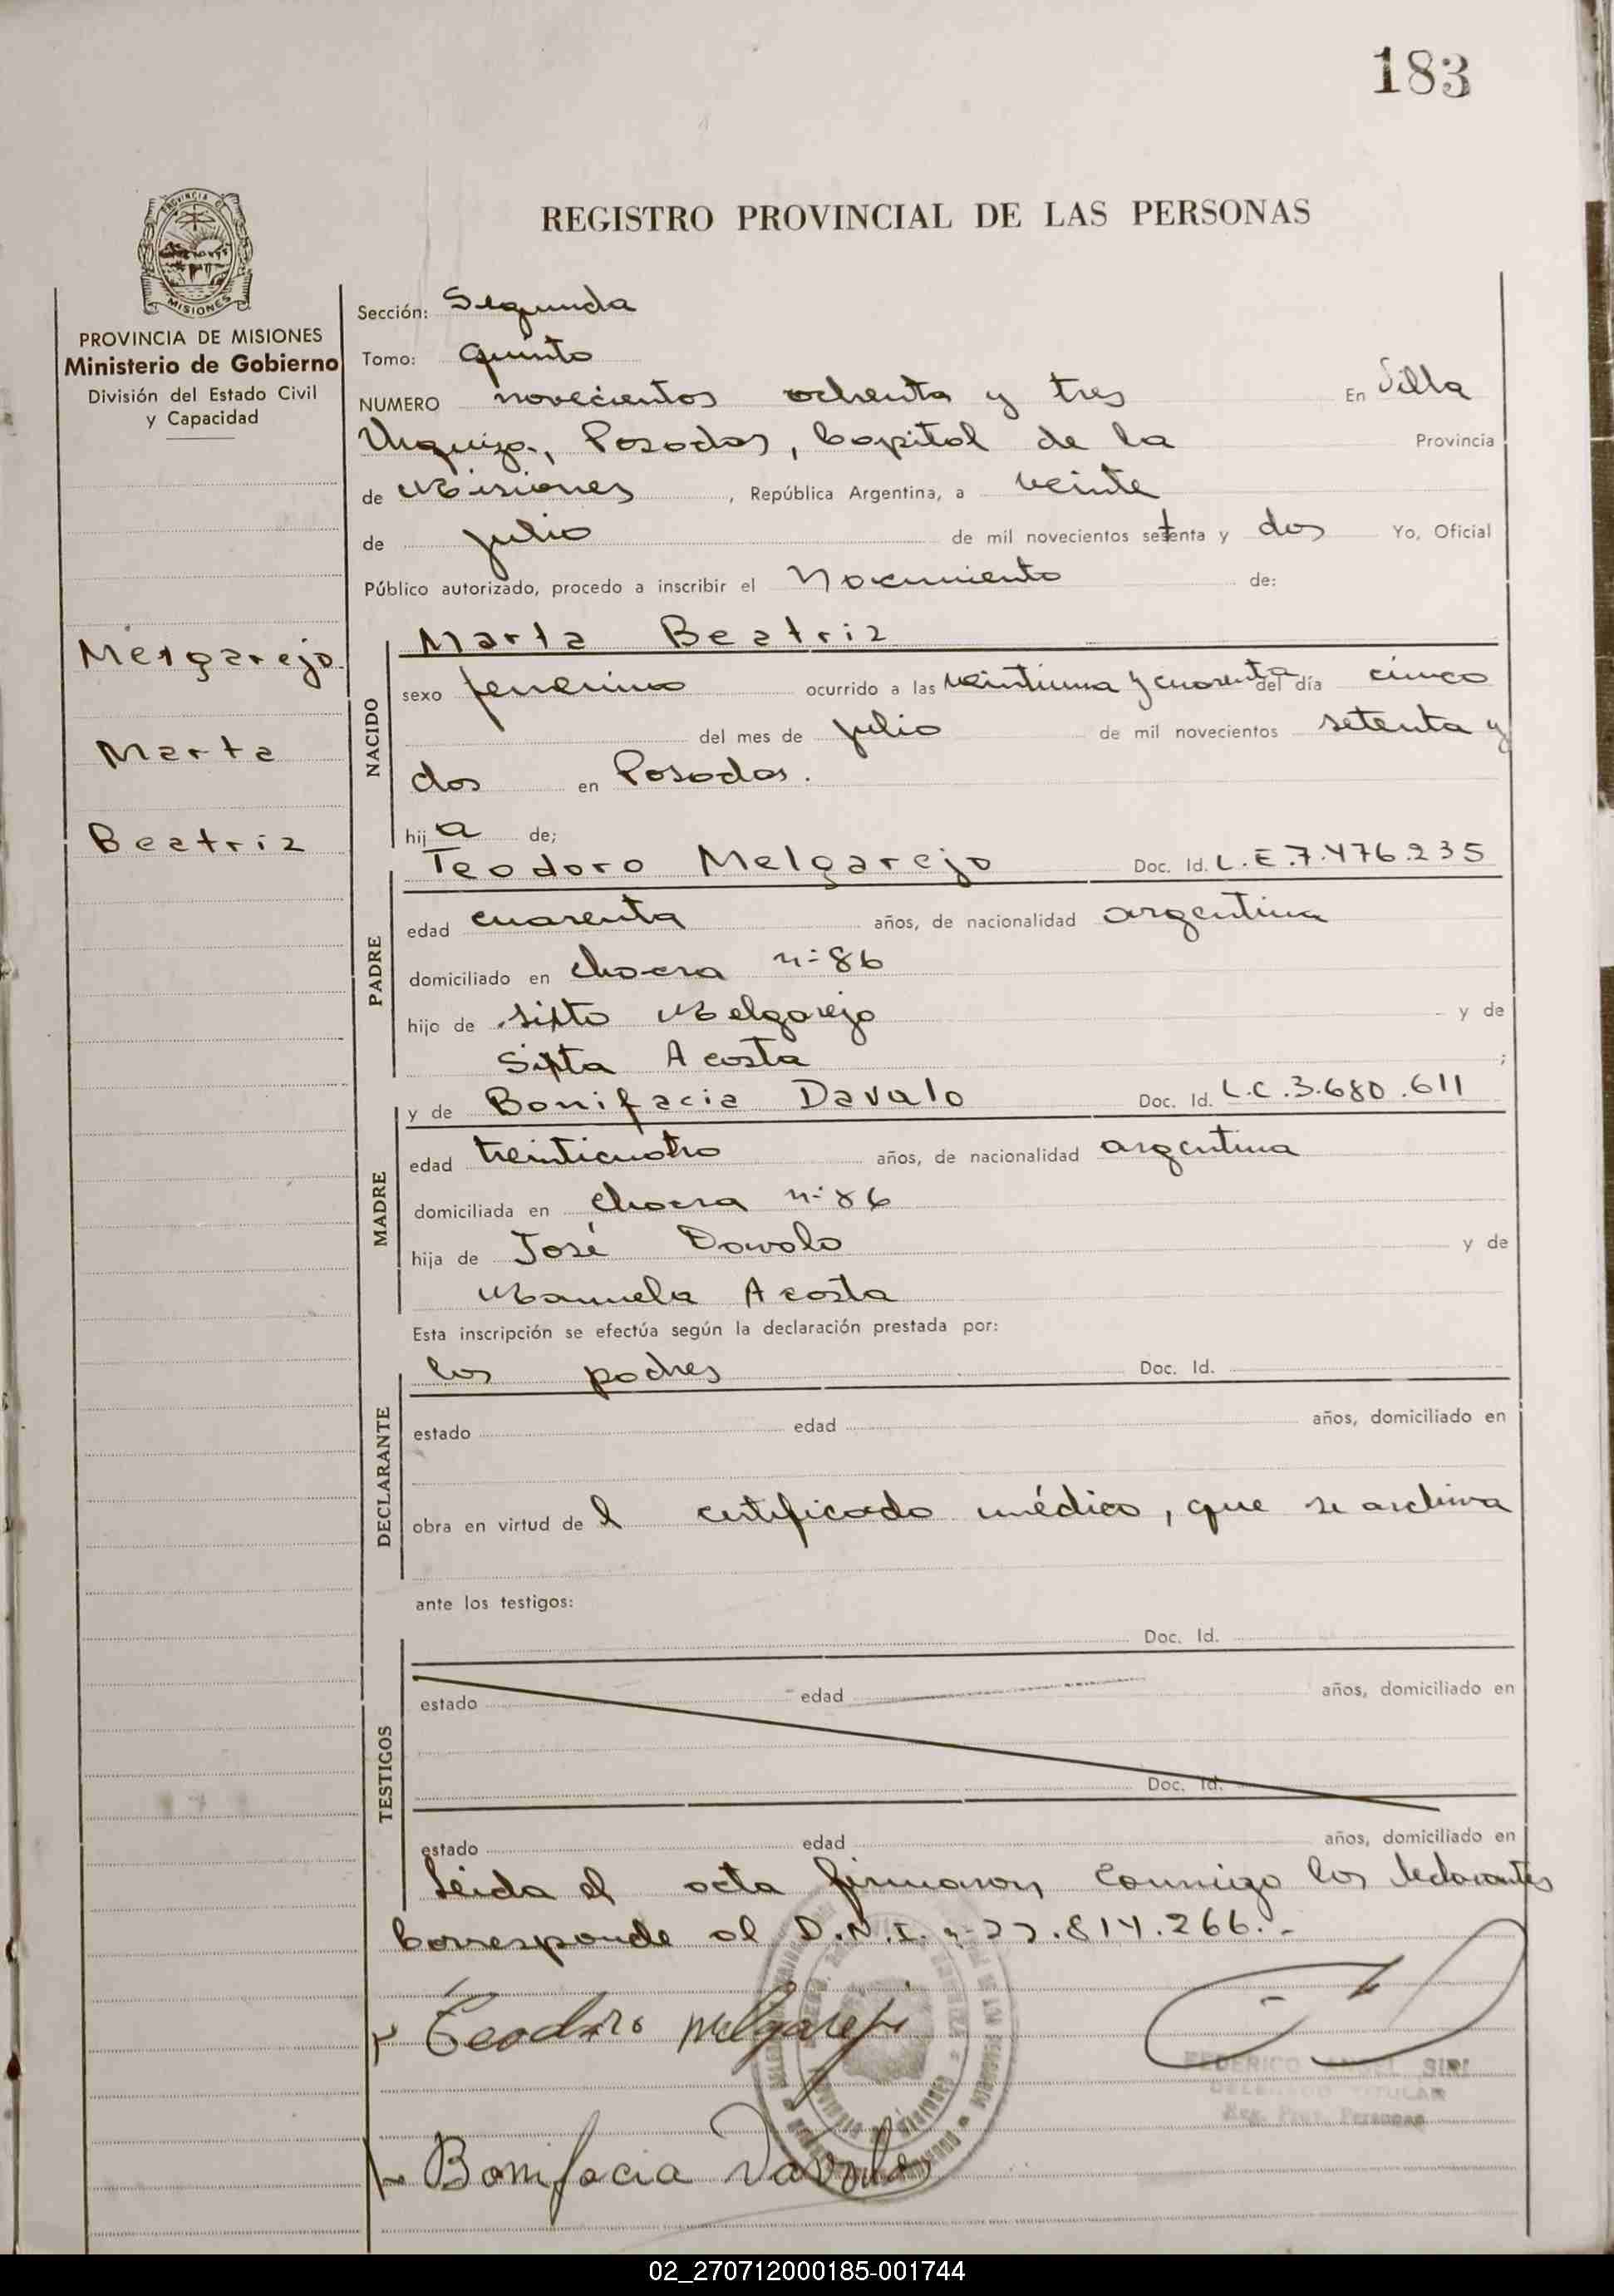 183
REGISTRO PROVINCIAL DE LAS PERSONAS
MISIONES
PROVINCIA DE MISIONES
Ministerio de Gobierno
División del Estado Civil
y Capacidad
Melgarejo
Marta
Beatriz
Sección: Segunda
Tomo: quinto
NUMERO novecientos ochenta y tres En Villa
Urquiza, Posadas, Capital de la Provincia
de Misiones, República Argentina, a veinte
de julio de mil novecientos setenta y dos Yo, Oficial
Público autorizado, procedo a inscribir el Nacimiento de:
NACIDO
Marta Beatriz
sexo femenino ocurrido a las veintiuna y cuarenta del día cinco
del mes de julio de mil novecientos setenta y
dos en Posadas.
hija de;
PADRE
Teodoro Melgarejo Doc. Id. L.E.7.476.235
edad cuarenta años, de nacionalidad argentina
domiciliado en chacra nº 86
hijo de Sixto Melgarejo y de
Sixta Acosta ;
MADRE
y de Bonifacia Davalo Doc. Id. L.C.3.680.611
edad treinticuatro años, de nacionalidad argentina
domiciliada en chacra nº 86
hija de José Davalo y de
Manuela Acosta
Esta inscripción se efectúa según la declaración prestada por:
DECLARANTE
los padres Doc. Id.
estado edad años, domiciliado en
obra en virtud de l certificado médico, que se archiva
ante los testigos:
TESTIGOS
Doc. Id.
estado edad años, domiciliado en
Doc. Id.
estado edad años, domiciliado en
Leida el acta firmaron conmigo los declarantes
Corresponde al D.N.I. nº 22.814.266.-
Teodoro Melgarejo
FEDERICO ANGEL SIRI
DELEGADO TITULAR
Reg. Prov. Personas
Bonifacia Davalos
02_270712000185-001744